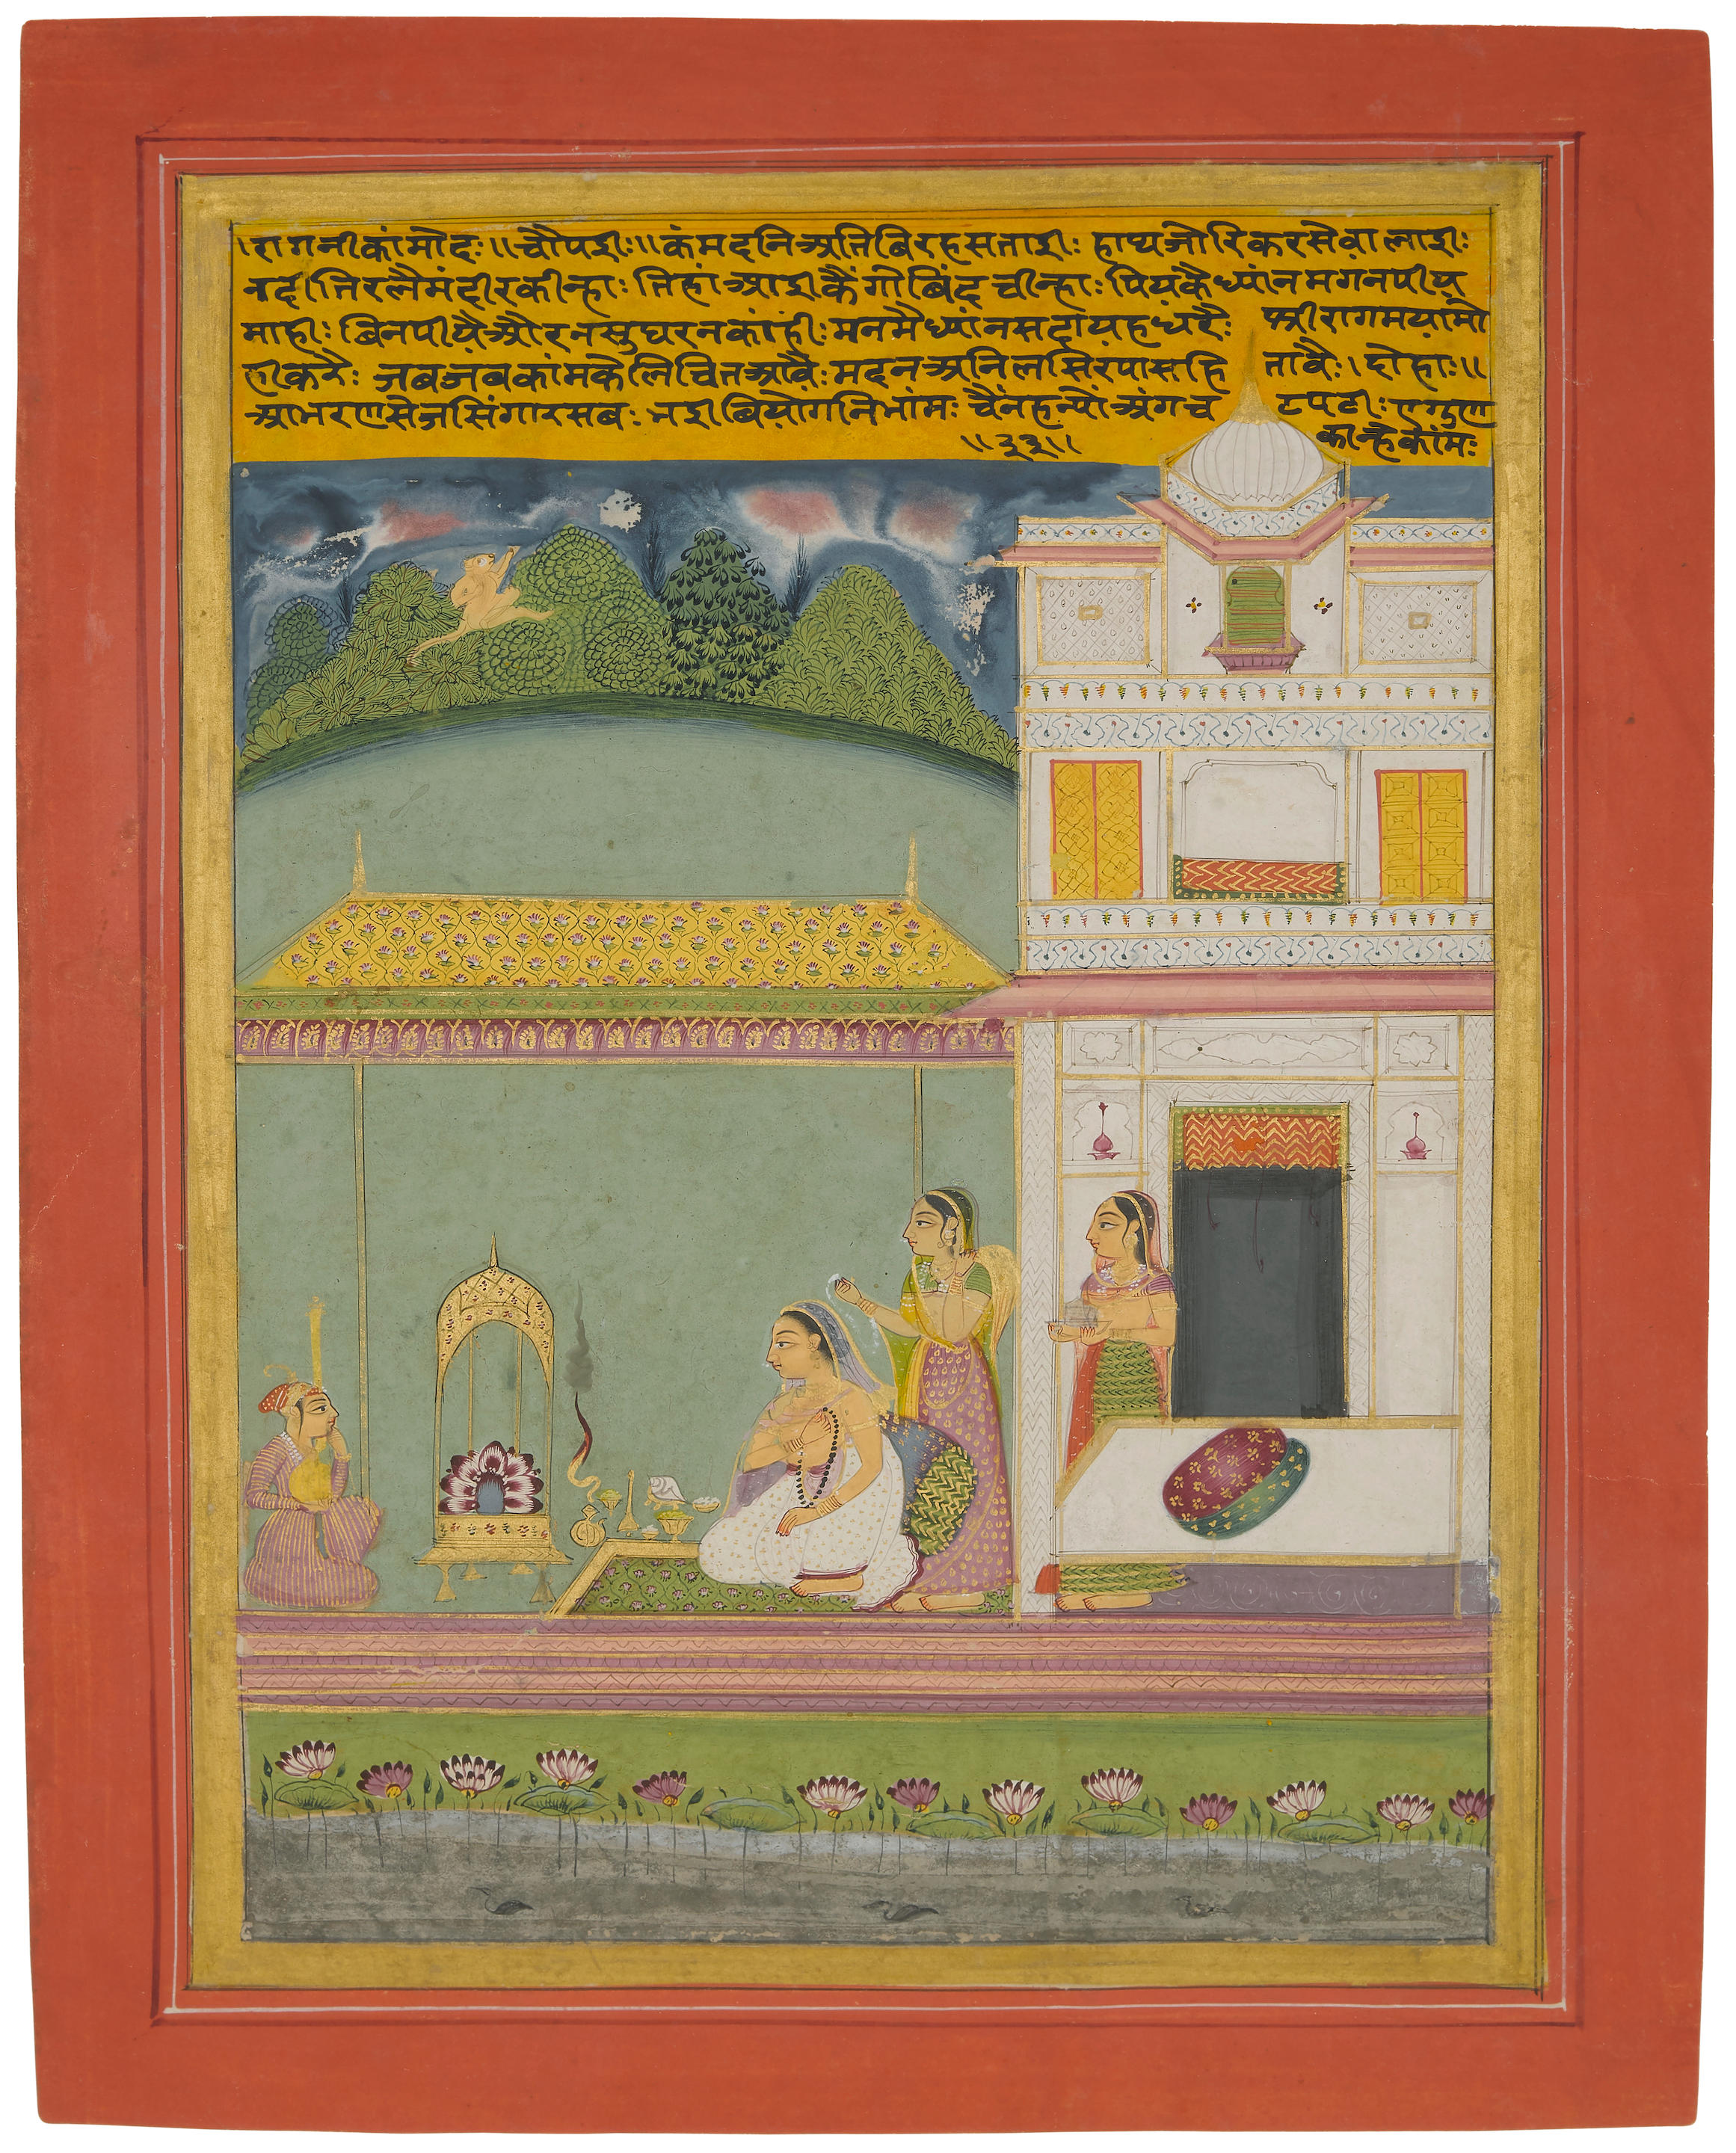 ।रागनीकांमोदः॥चौपईः॥कंमदनिअतिबिरहसताईः हाथजौरिकरसैवालाईः
नदीतिरलैमंदीरकीन्हाः तिहांआईकैंगोबिंदचीन्हाः पियकैध्यांनमगनपीय
माहीः बिनपीयैऔरनसुघरनकांहीः मनमैध्यांनसदायहधरैः श्रीरागमयांमो
हीकरैः जबजबकांमकैलिचितआवैः मदनअनिलसिरपासहि तावैः।दोहाः॥
आभरणसेजसिंगारसबः भईबियोगनिभांमः चैंनहन्यौअंगच टपटीः
॥३३॥ कीन्हैकांमः